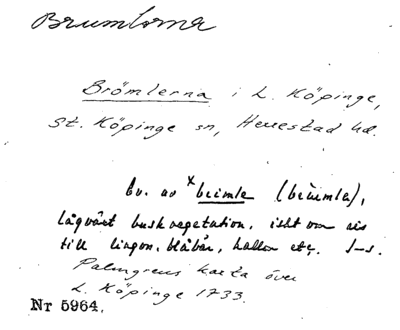 Brumlorna
Brömlerna i L. Köpinge,
St. Köpinge sn, Herrestad hd.
bv. av ×brimla (brumla),
lågväxt buskvegetation, isht om ris
till lingon, blåbär, hallon etc. I–s.
Palmgrens karta över
L. Köpinge 1733.
Nr 5964.